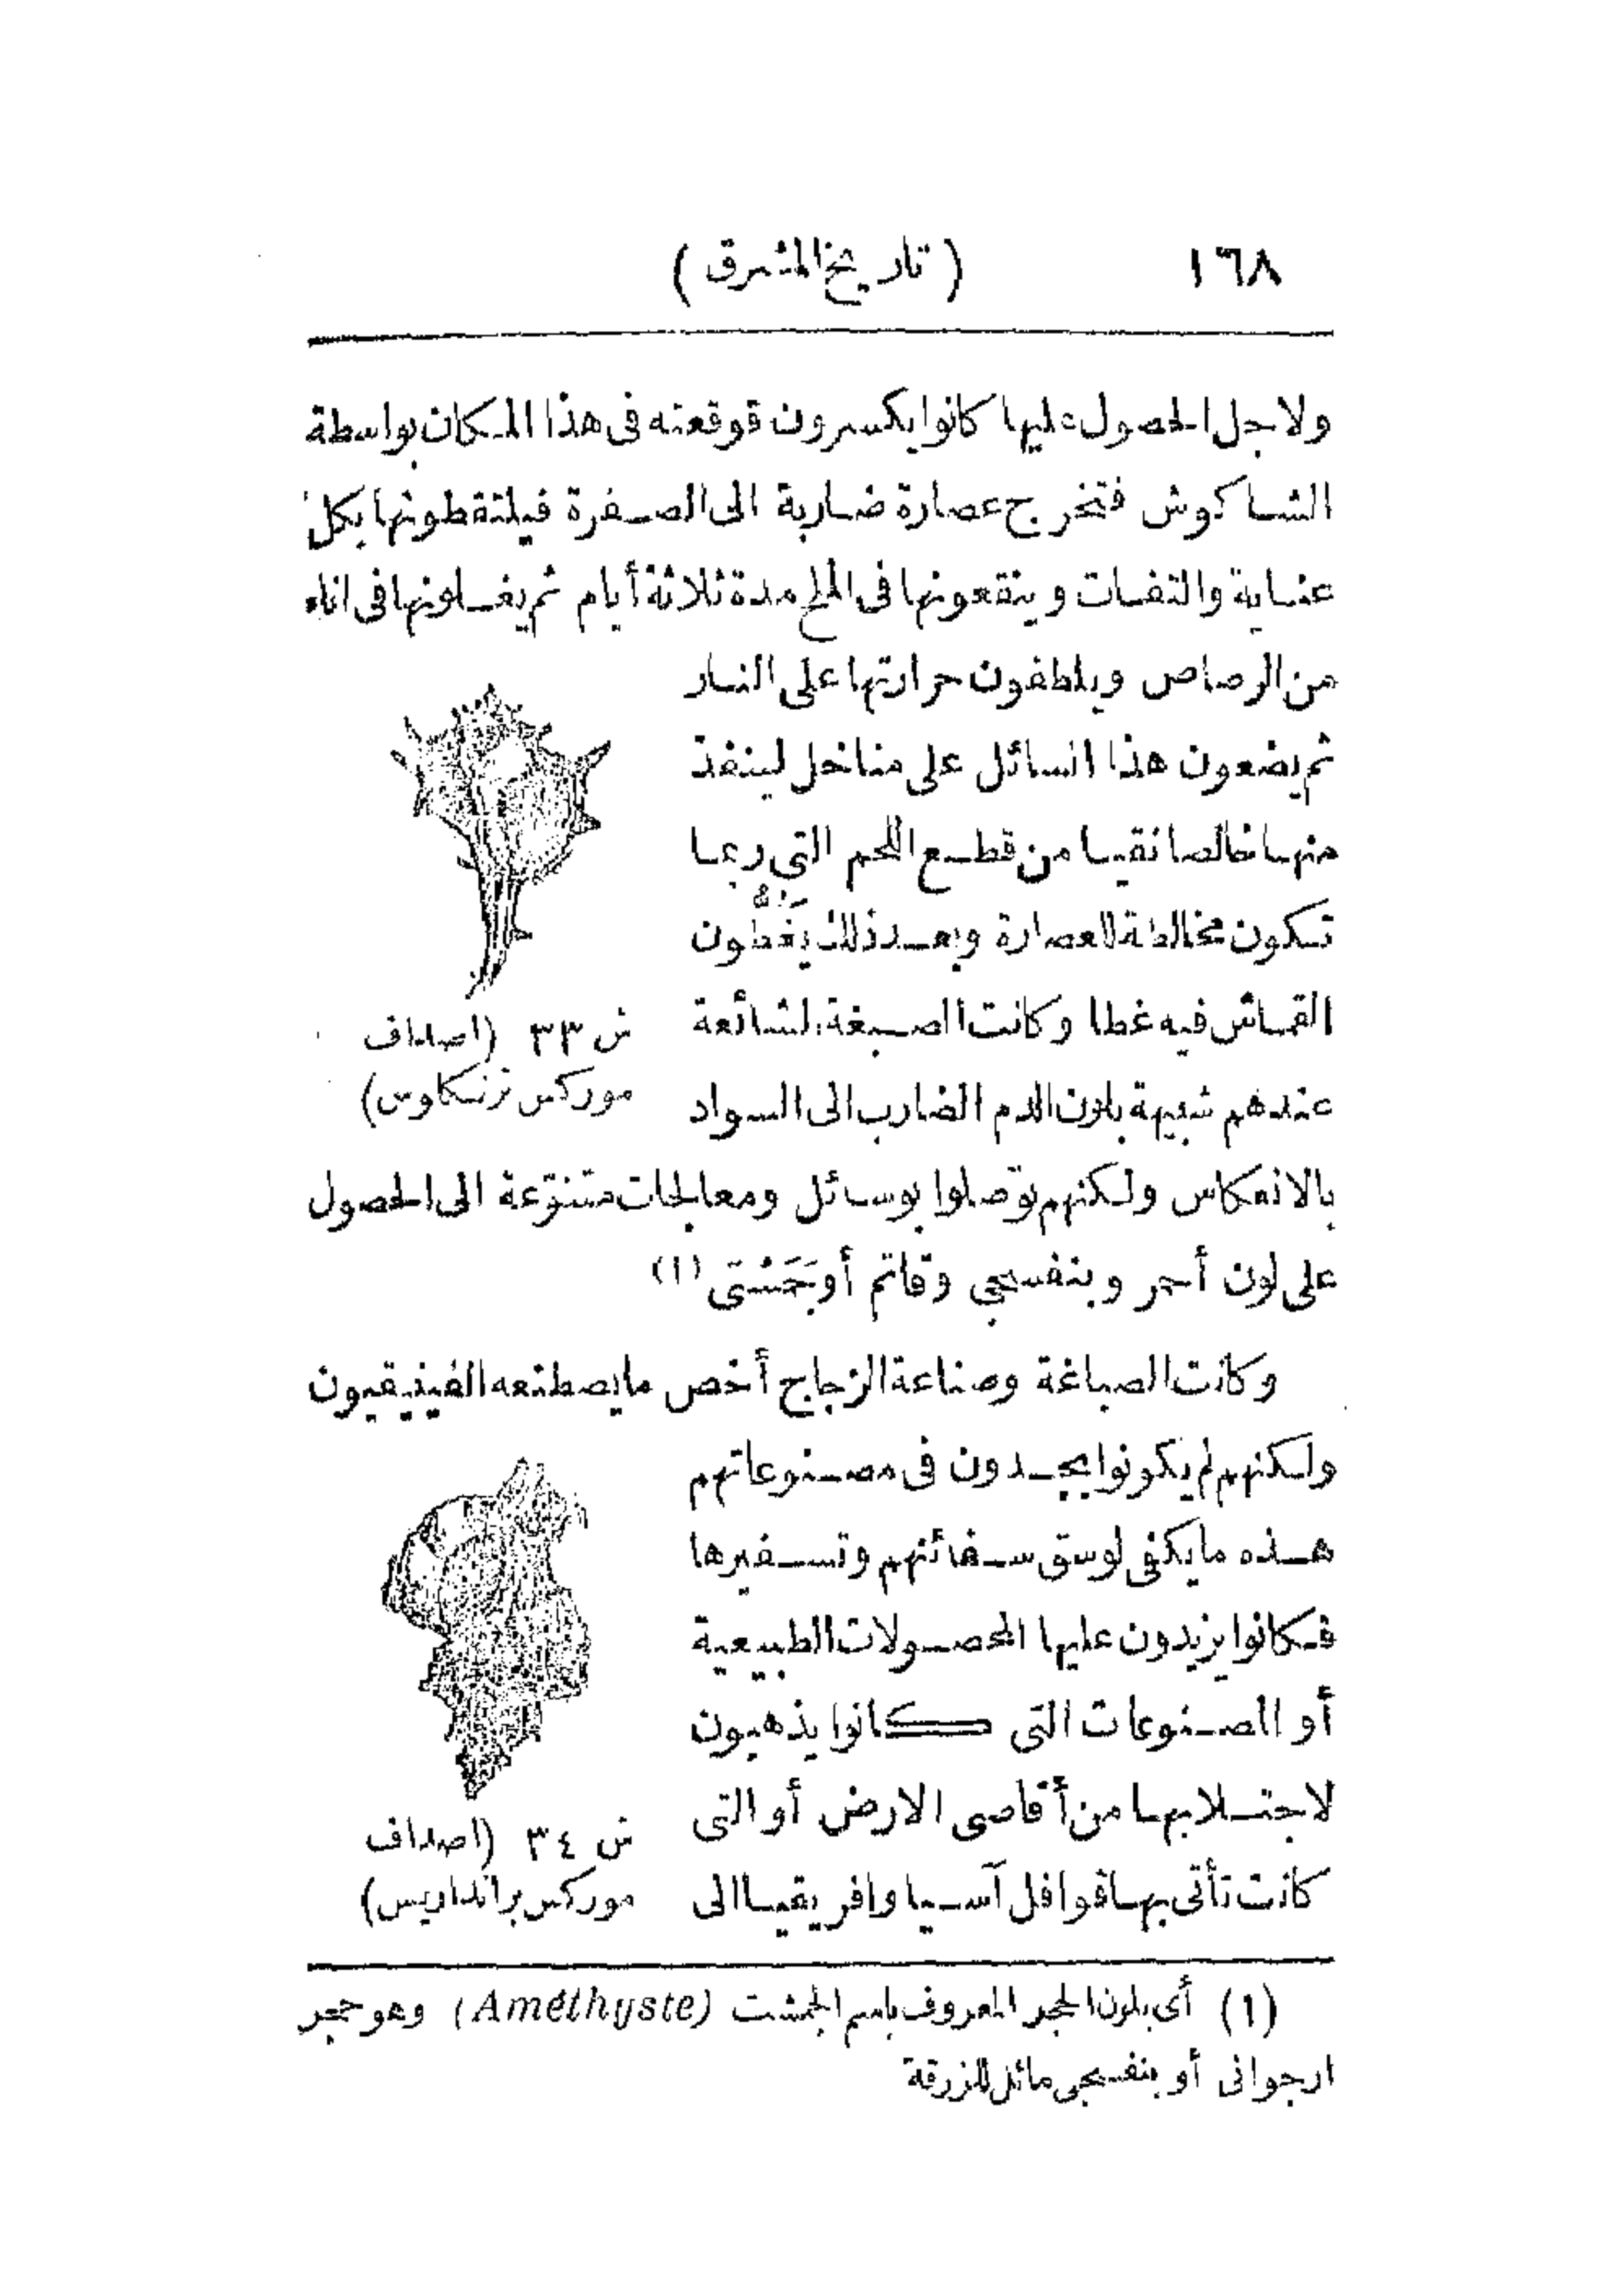 ١٦٨ ( تاريخ المشرق )
ولاجل الحصول عليها كانوا يكسرون قوقعته فى هذا المكان بواسطة
الشاكوش فتخرج عصارة ضاربة الى الصفرة فيلتقطونها بكل
عناية والتفات وينقعونها فى الملح مدة ثلاثة أيام ثم يغسلونها فى اناء
من الرصاص ويلطفون حرارتها على النار
ثم يضعون هذا السائل على مناخل لينفذ
منها خالصا نقيا من قطع اللحم التى ربما
تكون مخالطة للعصارة وبعد ذلك يَغُطُّون
القماش فيه غطا وكانت الصبغة الشائعة
عندهم شبيهة بلون الدم الضارب الى السواد
ش ٣٣ (اصداف
موركس ترنكاوس)
بالانعكاس ولكنهم توصلوا بوسائل ومعالجات متنوّعة الى الحصول
على لون أحمر وبنفسجي وقاتم أو جَمَشْتى (١)
وكانت الصباغة وصناعة الزجاج أخص ما يصطنعه الفينيقيون
ولكنهم لم يكونوا يجدون فى مصنوعاتهم
هذه ما يكفى لوسق سفائنهم وتسفيرها
فكانوا يزيدون عليها المحصولات الطبيعية
أو المصنوعات التى كانوا يذهبون
لاجتلابها من أقاصى الارض أو التى
كانت تأتى بها قوافل آسيا وافريقيا الى
ش ٣٤ (اصداف
موركس برانداريس)
(١) أى بلون الحجر المعروف باسم الجمشت (Améthyste) وهو حجر
ارجوانى أو بنفسجى مائل للزرقة